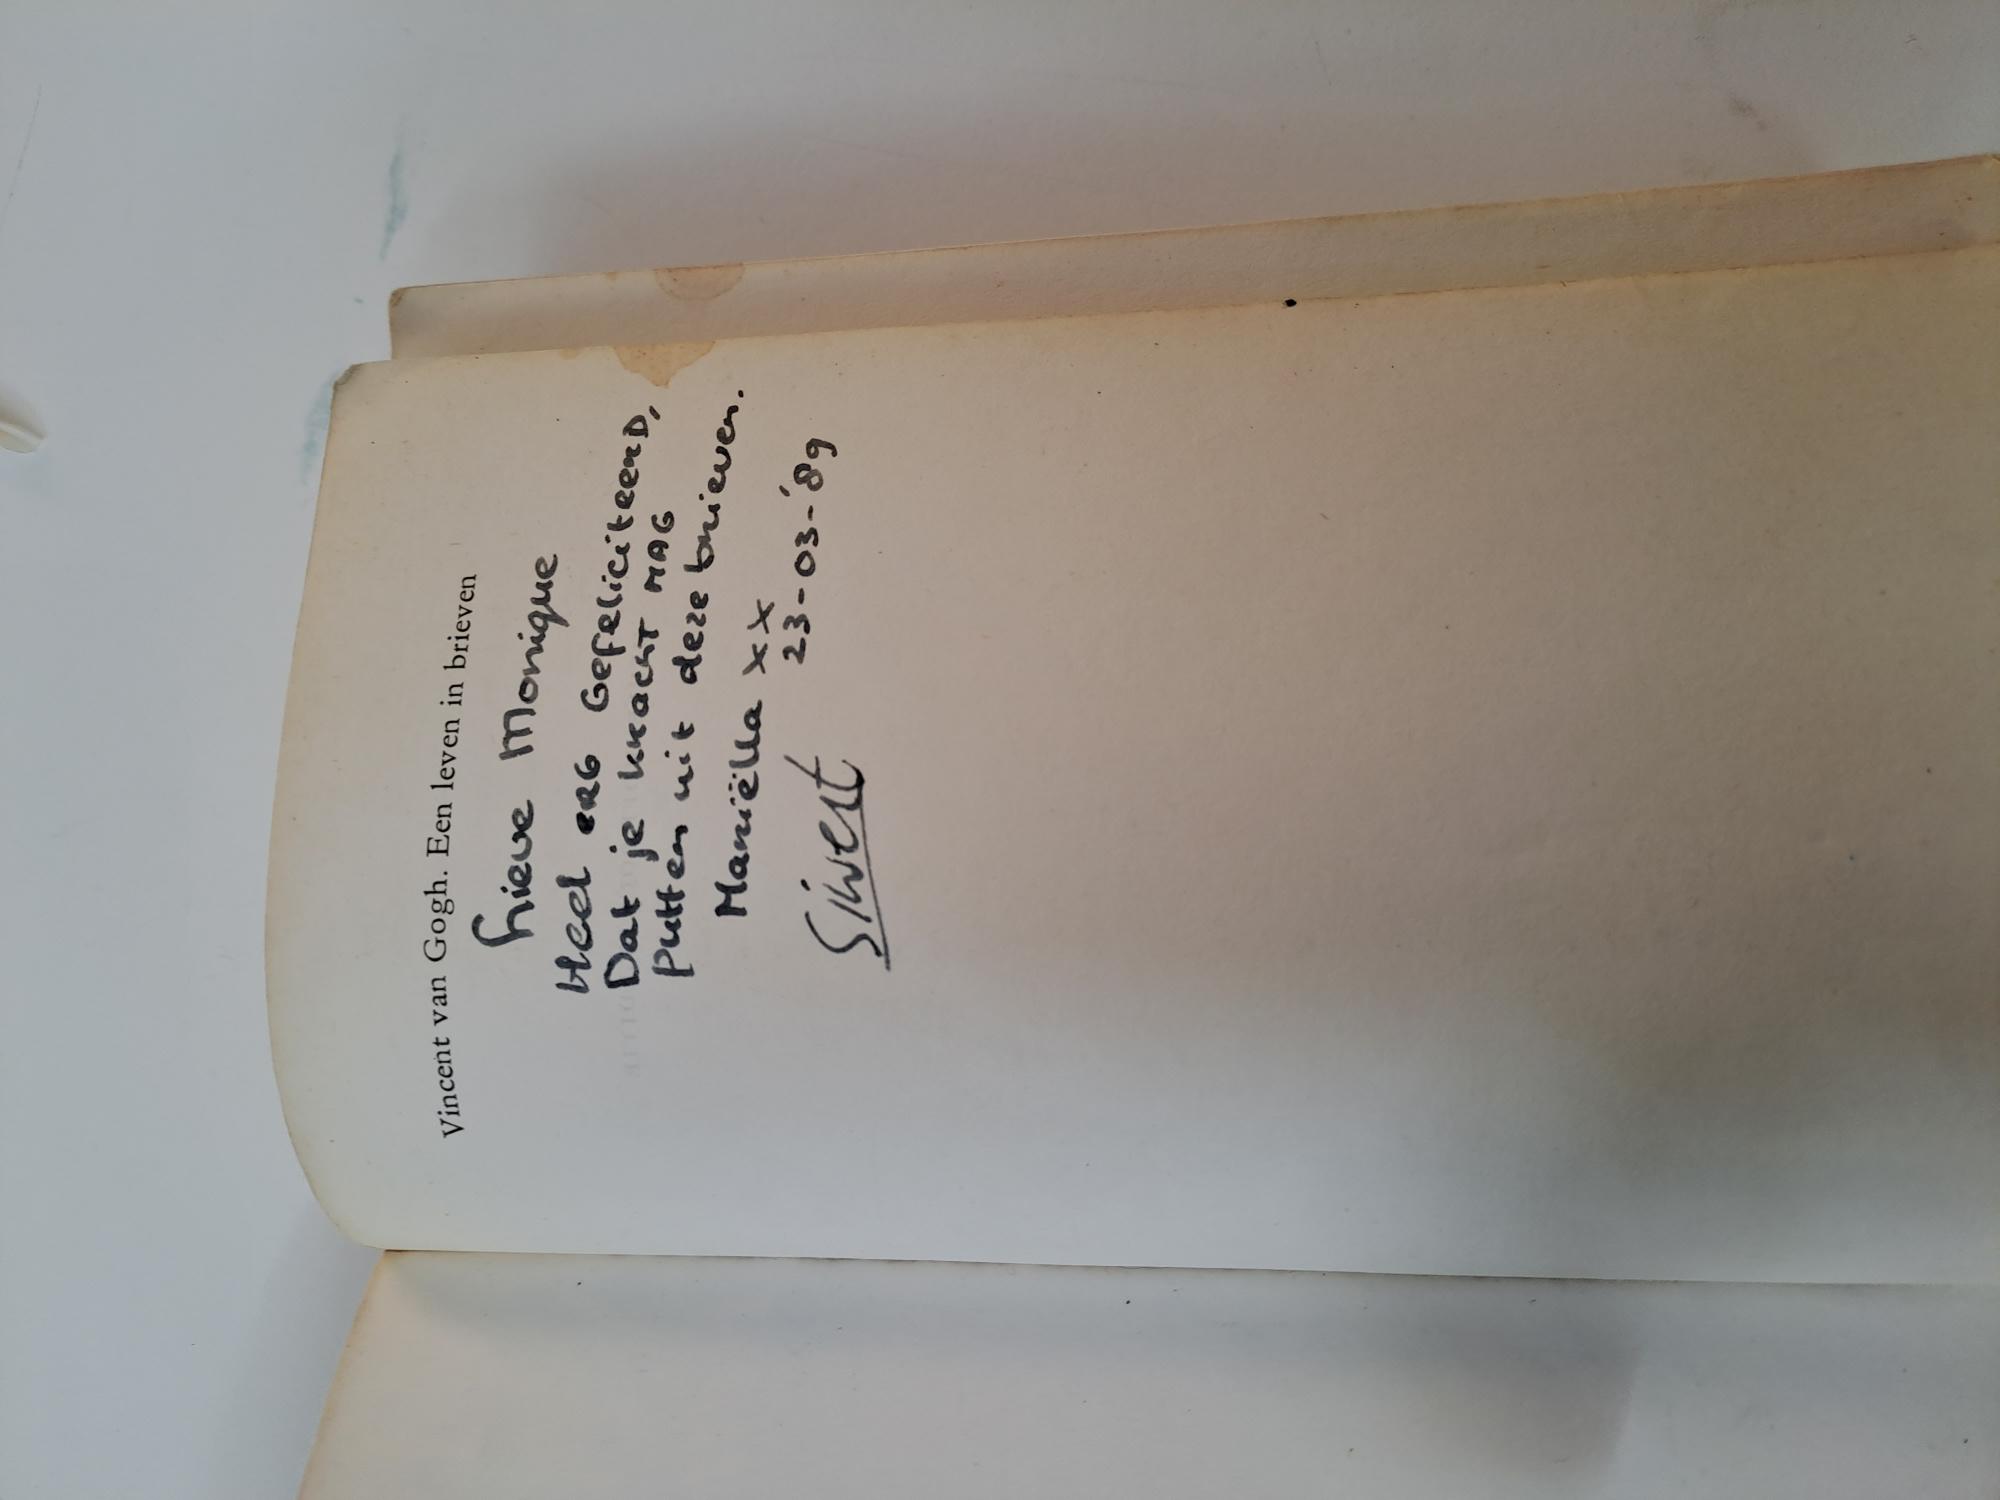 Vincent van Gogh. Een leven in brieven
Lieve Monique
Heel erg Gefeliciteerd,
Dat je kracht mag
putten uit deze brieven.
Mariëlla xx
23-03-'89
Siwert